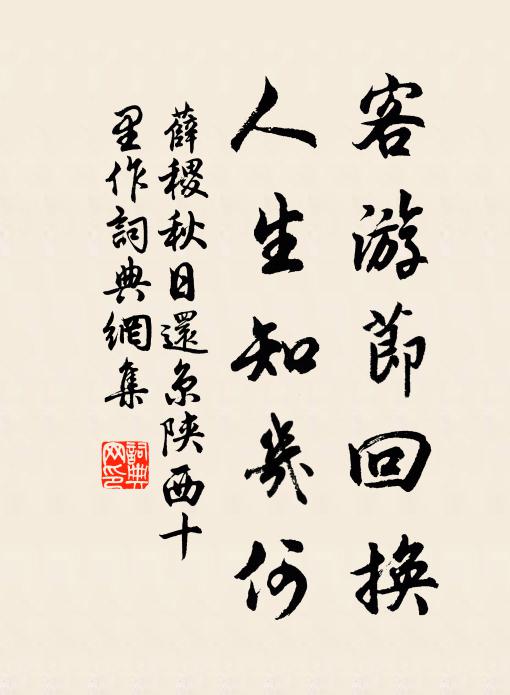 客游節回换
人生知幾何
薛稷秋日還京陝西十
里作詞典網集
詞典
网印